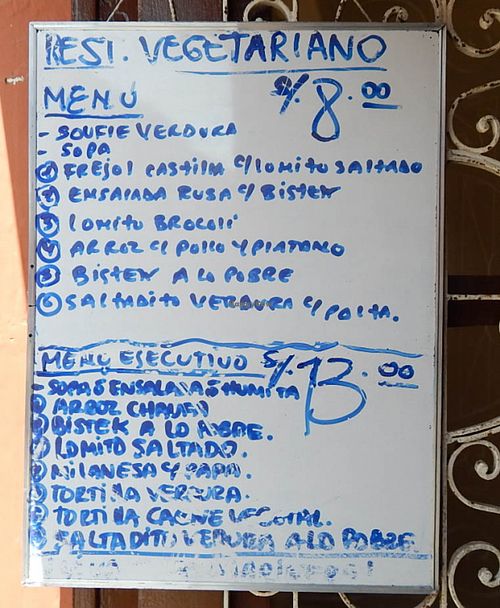 REST. VEGETARIANO
MENÚ S/. 8.00
- SOUFLE VERDURA
- SOPA
① FREJOL CASTILLA C/LOMITO SALTADO
② ENSALADA RUSA C/ BISTEK
③ LOMITO BROCOLI
④ ARROZ C/ POLLO Y PLATANO
⑤ BISTEK A LO POBRE
⑥ SALTADITO VERDURA C/ PALTA.
MENÚ ESECUTIVO S/. 13.00
- SOPA Ó ENSALADA Ó HUMITA
ARROZ CHAUFA
BISTEK A LO POBRE.
LOMITO SALTADO.
MILANESA Y PAPA.
TORTILLA VERDURA.
TORTILLA CARNE VEGETAL.
SALTADITO VERDURA A LO POBRE.